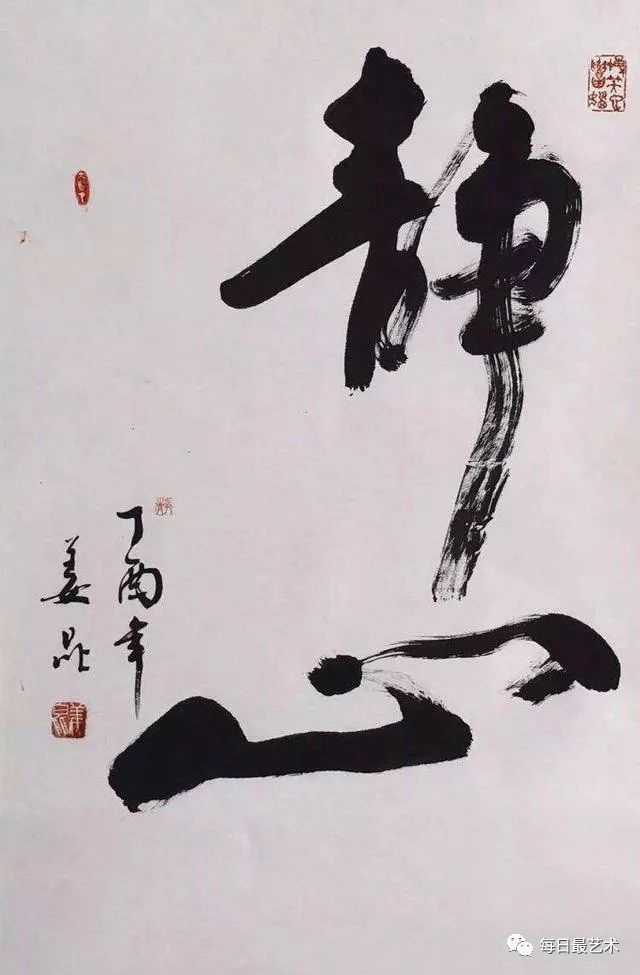 静心
丁酉年
姜昆
每日最艺术